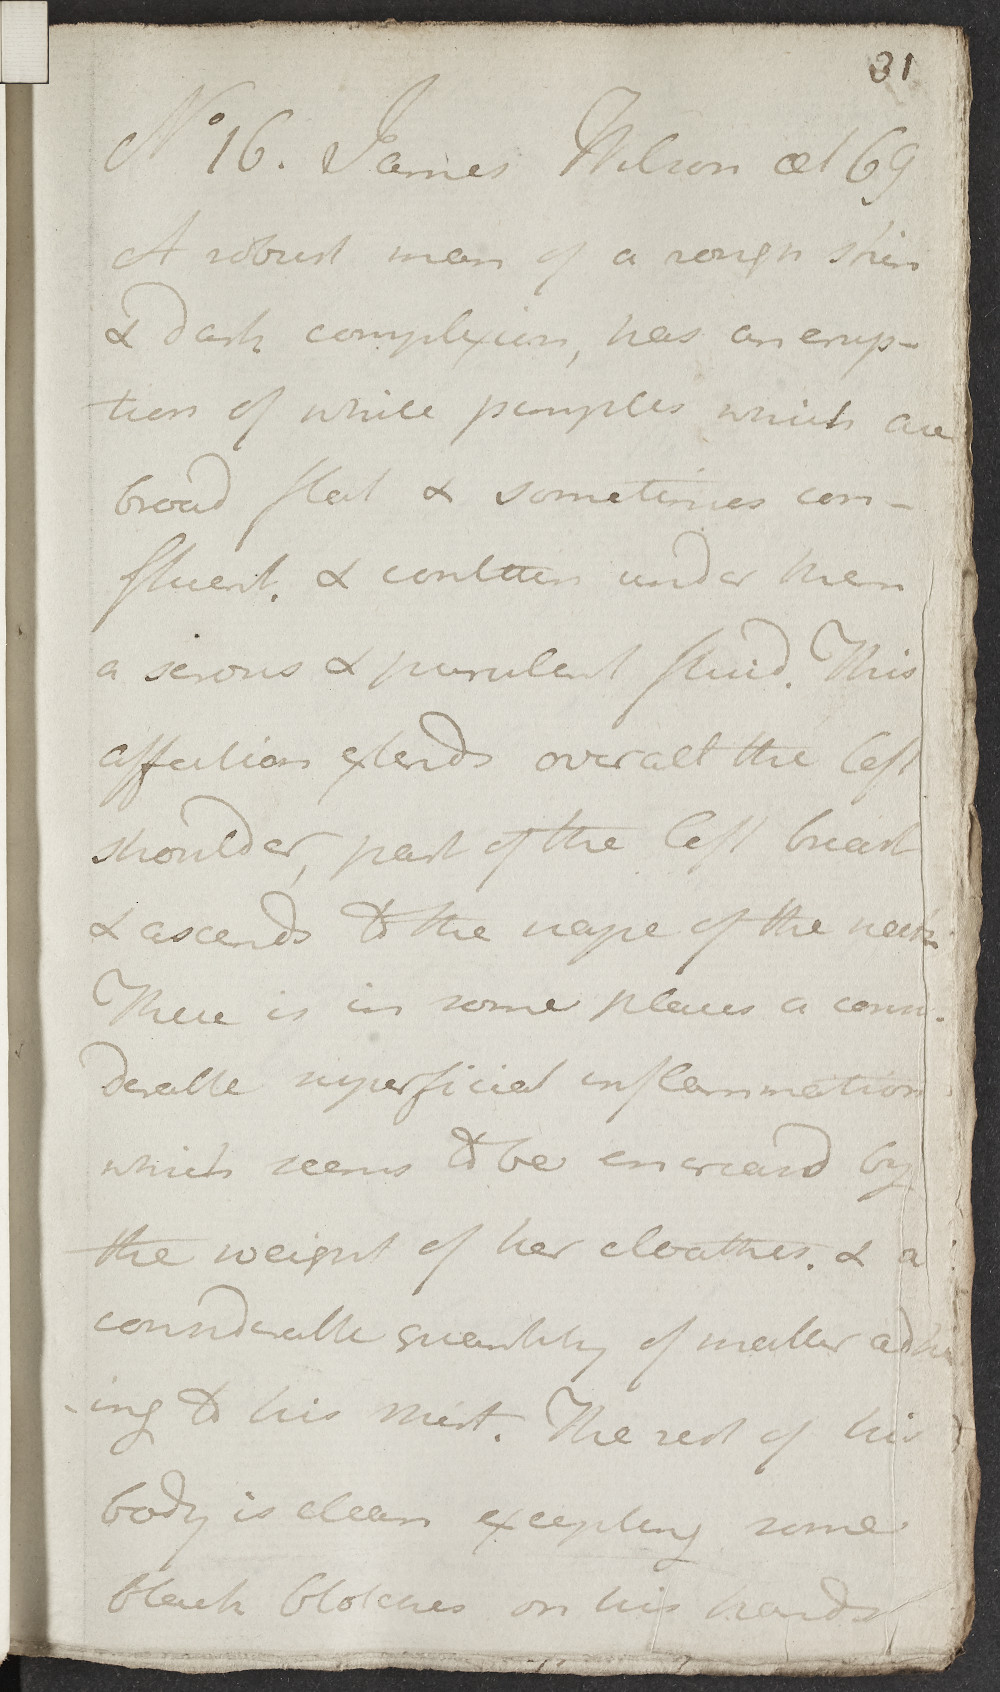 31
No 16. James Wilson æt 69
A robust man of a rough skin
& dark complexion, has an erup-
tion of white pimples which are
broad flat & sometimes con-
fluent. & contain under them
a serous & purulent fluid. This
affection extends over all the left
shoulder, part of the left breast
& ascends to the nape of the neck.
There is in some places a consi-
derable superficial inflammation
which seems to be encreased by
the weight of her cloathes. & a
considerable quantity of matter adher
-ing to his shirt. The rest of his
body is clean excepting some
black blotches on his hands